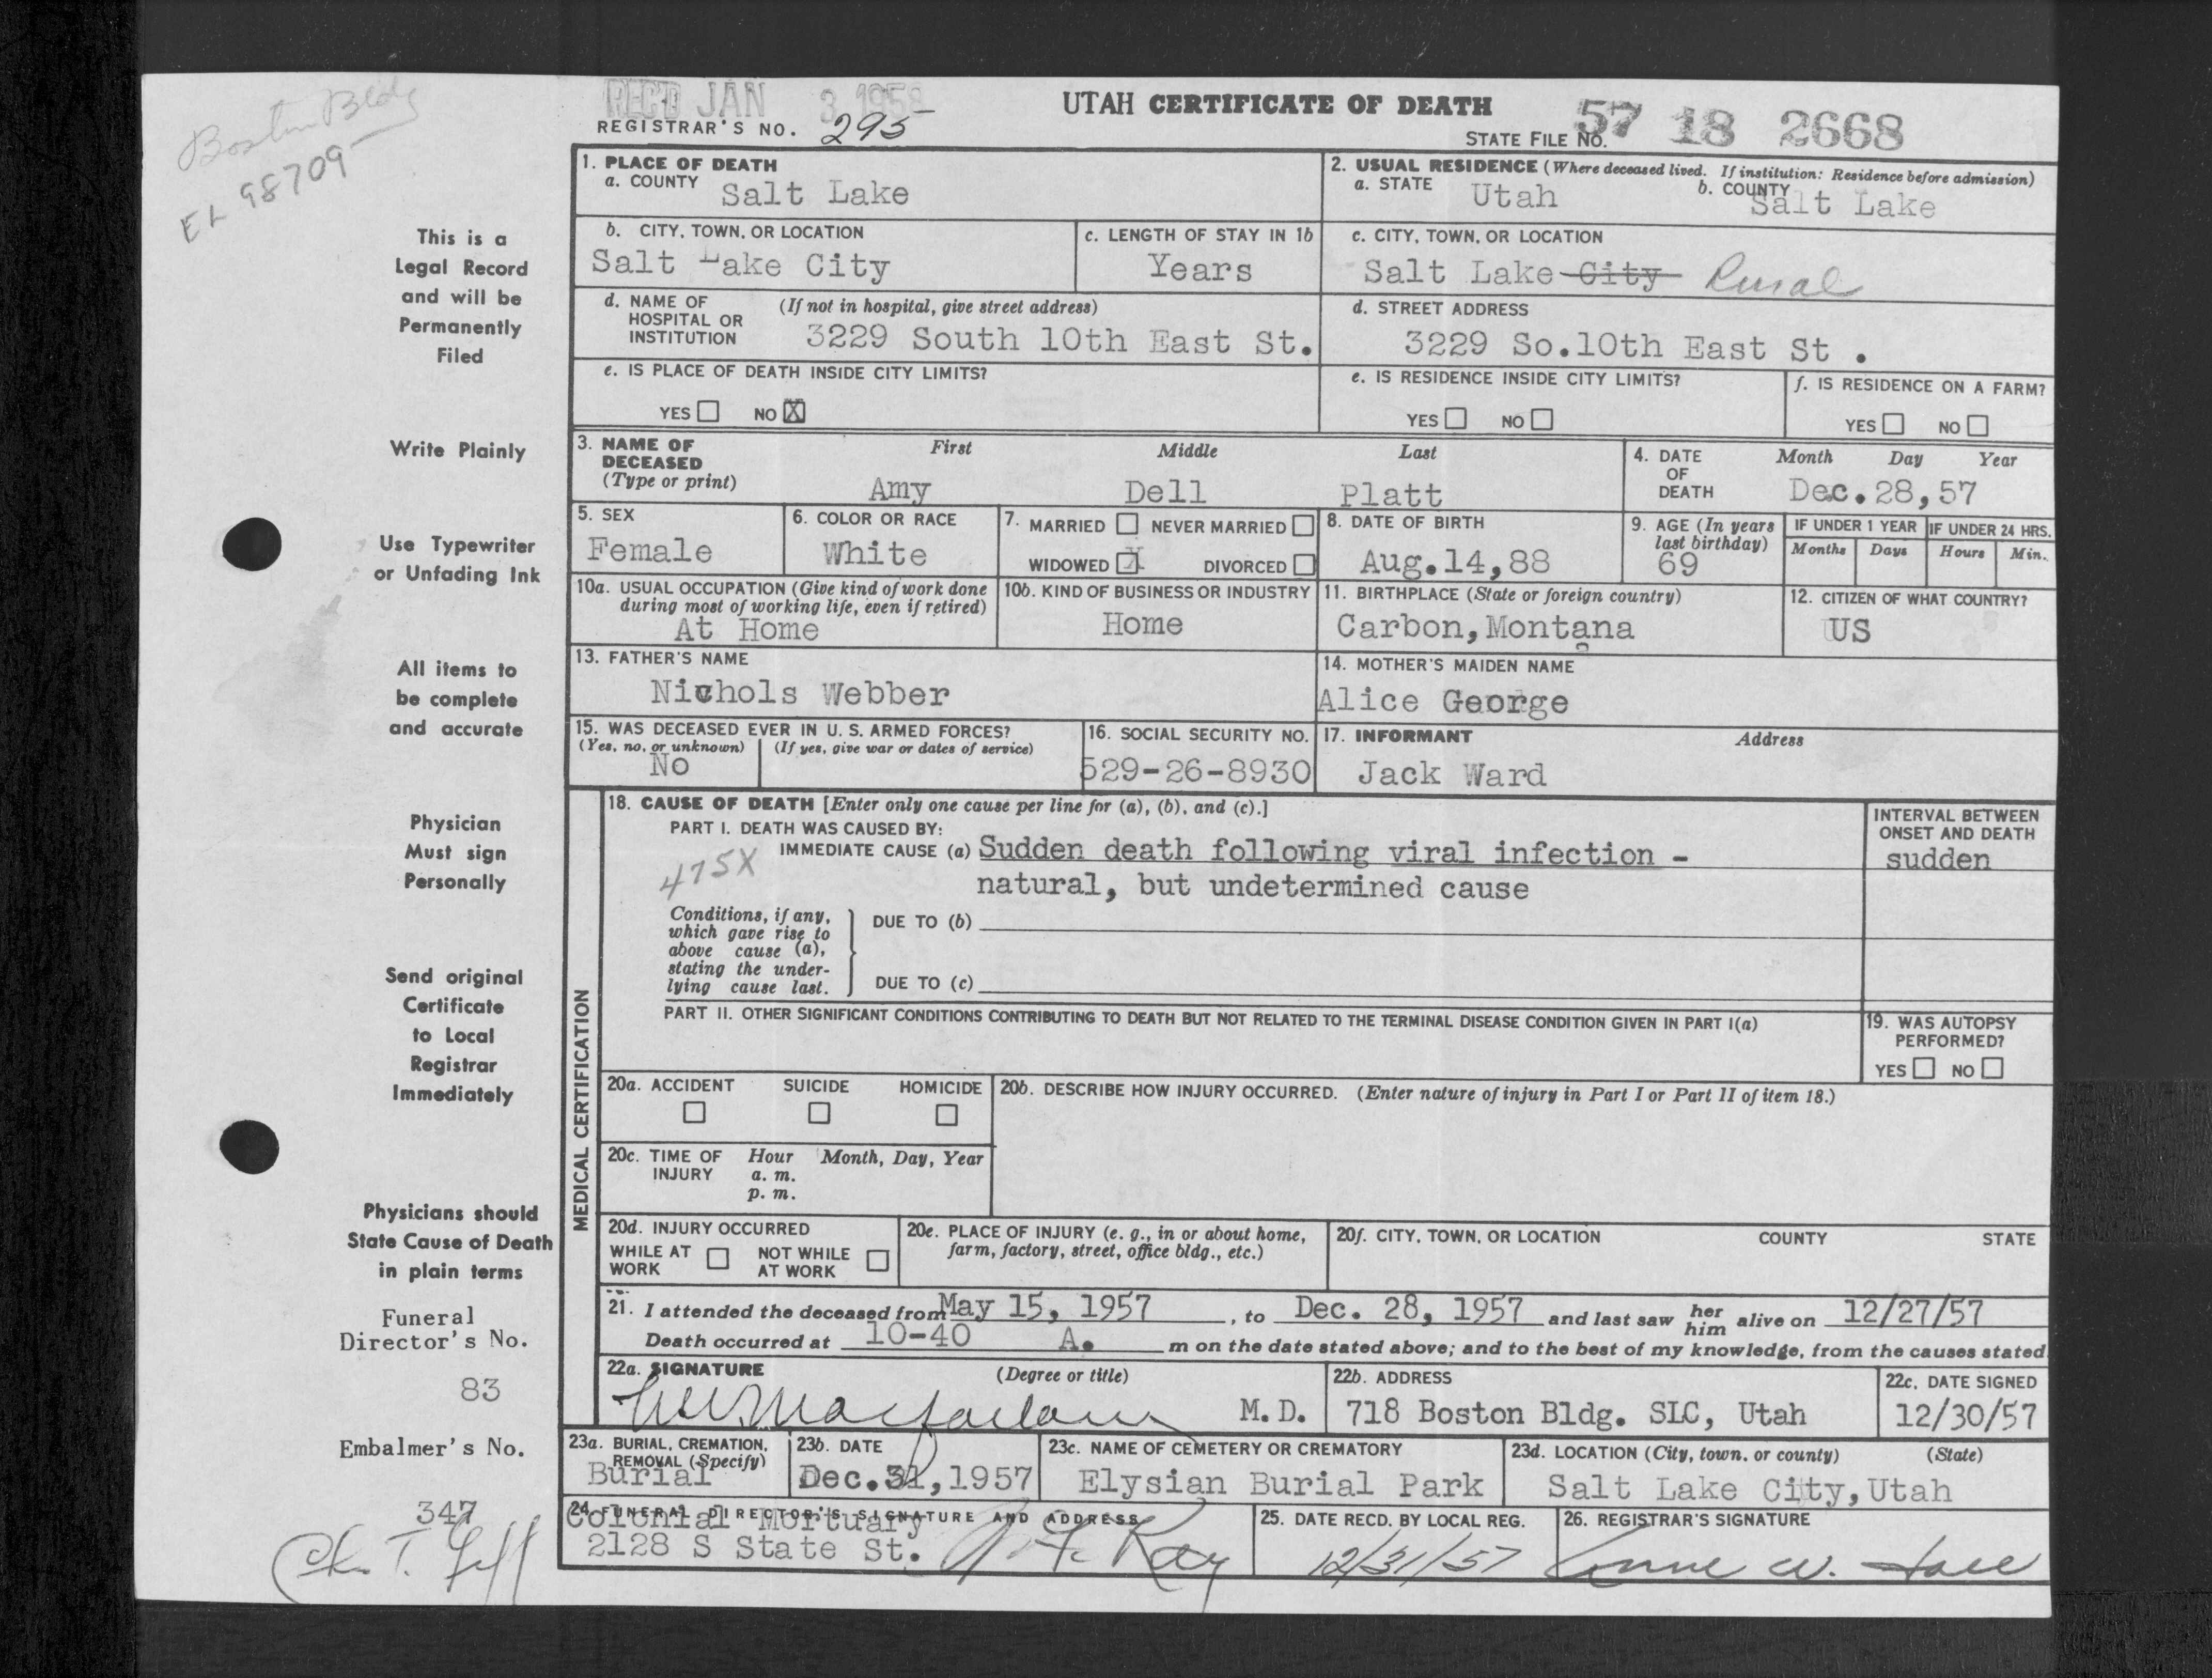 Boston Bldg
EL 98709
REC'D JAN 3 1958
REGISTRAR'S NO. 295
UTAH CERTIFICATE OF DEATH
STATE FILE NO. 57 18 2668
This is a
Legal Record
and will be
Permanently
Filed
Write Plainly
Use Typewriter
or Unfading Ink
All items to
be complete
and accurate
Physician
Must sign
Personally
Send original
Certificate
to Local
Registrar
Immediately
Physicians should
State Cause of Death
in plain terms
Funeral
Director's No.
83
Embalmer's No.
347
1. PLACE OF DEATH
a. COUNTY Salt Lake
2. USUAL RESIDENCE (Where deceased lived. If institution: Residence before admission)
a. STATE Utah b. COUNTY Salt Lake
b. CITY, TOWN, OR LOCATION
Salt Lake City
c. LENGTH OF STAY IN 1b
Years
c. CITY, TOWN, OR LOCATION
Salt Lake City Rural
d. NAME OF HOSPITAL OR INSTITUTION (If not in hospital, give street address)
3229 South 10th East St.
d. STREET ADDRESS
3229 So.10th East St .
e. IS PLACE OF DEATH INSIDE CITY LIMITS?
YES NO X
e. IS RESIDENCE INSIDE CITY LIMITS?
YES NO
f. IS RESIDENCE ON A FARM?
YES NO
3. NAME OF DECEASED (Type or print)
First Middle Last
Amy Dell Platt
4. DATE OF DEATH
Month Day Year
Dec.28,57
5. SEX
Female
6. COLOR OR RACE
White
7. MARRIED NEVER MARRIED
WIDOWED X DIVORCED
8. DATE OF BIRTH
Aug.14,88
9. AGE (In years last birthday)
69
IF UNDER 1 YEAR
Months Days
IF UNDER 24 HRS.
Hours Min.
10a. USUAL OCCUPATION (Give kind of work done during most of working life, even if retired)
At Home
10b. KIND OF BUSINESS OR INDUSTRY
Home
11. BIRTHPLACE (State or foreign country)
Carbon,Montana
12. CITIZEN OF WHAT COUNTRY?
US
13. FATHER'S NAME
Nichols Webber
14. MOTHER'S MAIDEN NAME
Alice George
15. WAS DECEASED EVER IN U. S. ARMED FORCES?
(Yes, no, or unknown) (If yes, give war or dates of service)
No
16. SOCIAL SECURITY NO.
529-26-8930
17. INFORMANT Address
Jack Ward
MEDICAL CERTIFICATION
18. CAUSE OF DEATH [Enter only one cause per line for (a), (b), and (c).]
PART I. DEATH WAS CAUSED BY:
IMMEDIATE CAUSE (a) Sudden death following viral infection -
475X
natural, but undetermined cause
INTERVAL BETWEEN ONSET AND DEATH
sudden
Conditions, if any,
which gave rise to
above cause (a),
stating the under-
lying cause last.
DUE TO (b)
DUE TO (c)
PART II. OTHER SIGNIFICANT CONDITIONS CONTRIBUTING TO DEATH BUT NOT RELATED TO THE TERMINAL DISEASE CONDITION GIVEN IN PART I(a)
19. WAS AUTOPSY PERFORMED?
YES NO
20a. ACCIDENT SUICIDE HOMICIDE
20b. DESCRIBE HOW INJURY OCCURRED. (Enter nature of injury in Part I or Part II of item 18.)
20c. TIME OF INJURY Hour Month, Day, Year
a. m.
p. m.
20d. INJURY OCCURRED
WHILE AT WORK NOT WHILE AT WORK
20e. PLACE OF INJURY (e. g., in or about home, farm, factory, street, office bldg., etc.)
20f. CITY, TOWN, OR LOCATION COUNTY STATE
21. I attended the deceased from May 15, 1957, to Dec. 28, 1957 and last saw her him alive on 12/27/57
Death occurred at 10-40 A. m on the date stated above; and to the best of my knowledge, from the causes stated
22a. SIGNATURE (Degree or title)
Macfarlane M.D.
22b. ADDRESS
718 Boston Bldg. SLC, Utah
22c. DATE SIGNED
12/30/57
23a. BURIAL, CREMATION, REMOVAL (Specify)
Burial
23b. DATE
Dec.31,1957
23c. NAME OF CEMETERY OR CREMATORY
Elysian Burial Park
23d. LOCATION (City, town, or county) (State)
Salt Lake City,Utah
24. FUNERAL DIRECTOR'S SIGNATURE AND ADDRESS
Colonial Mortuary
2128 S State St.
25. DATE RECD. BY LOCAL REG.
12/31/57
26. REGISTRAR'S SIGNATURE